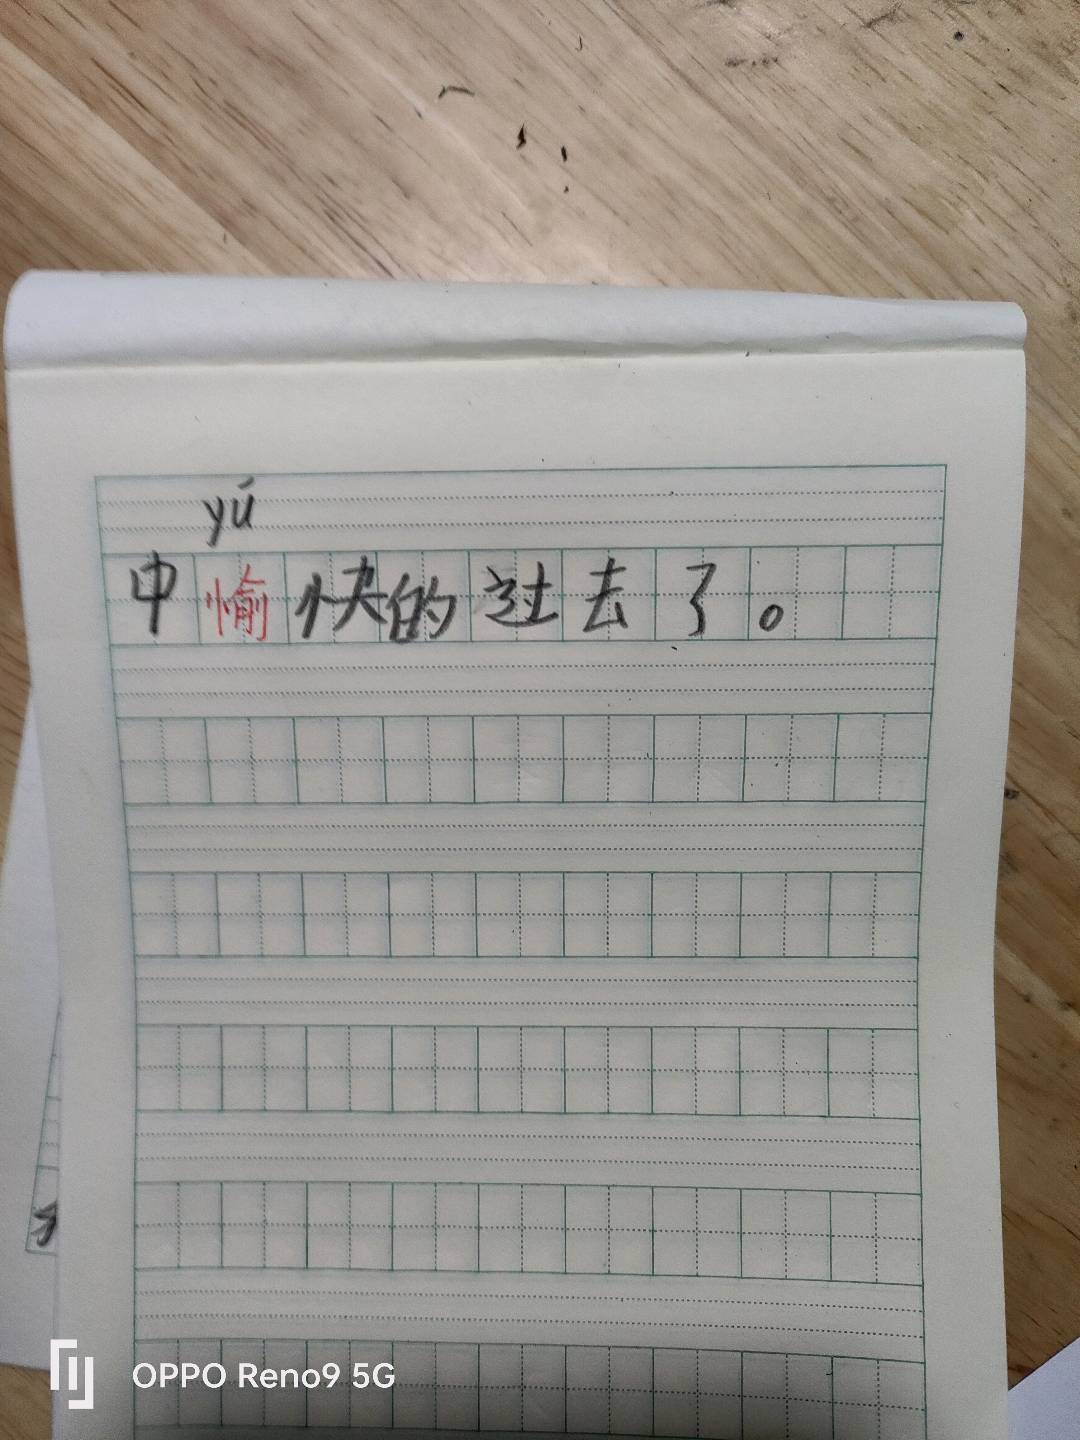 yú
中愉快的过去了。
OPPO Reno9 5G